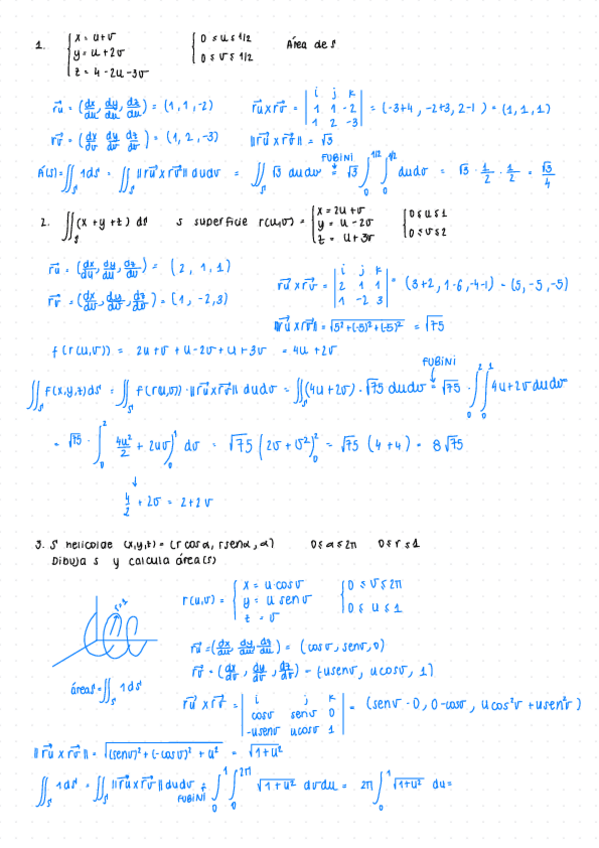 1. { x = u+v   { 0 ≤ u ≤ 1/2   Área de S
y = u+2v   0 ≤ v ≤ 1/2
z = 4-2u-3v
r⃗u = (dx/du, dy/du, dz/du) = (1, 1, -2)   r⃗u x r⃗v = | i j k | 1 1 -2 | 1 2 -3 | = (-3+4, -2+3, 2-1) = (1, 1, 1)
r⃗v = (dx/dv, dy/dv, dz/dv) = (1, 2, -3)   ||r⃗u x r⃗v|| = √3
A(S) = ∬_S 1dS = ∬_S ||r⃗u x r⃗v|| dudv = ∬_S √3 dudv = FUBINI √3 ∫_0^1/2 ∫_0^1/2 dudv = √3 · 1/2 · 1/2 = √3/4
2. ∬_S (x+y+z) dS   S superficie r(u,v) = { x = 2u+v   { 0 ≤ u ≤ 1
y = u-2v   0 ≤ v ≤ 2
z = u+3v
r⃗u = (dx/du, dy/du, dz/du) = (2, 1, 1)
r⃗u x r⃗v = | i j k | 2 1 1 | 1 -2 3 | = (3+2, 1-6, -4-1) = (5, -5, -5)
r⃗v = (dx/dv, dy/dv, dz/dv) = (1, -2, 3)
||r⃗u x r⃗v|| = √5²+(-5)²+(-5)² = √75
f(r(u,v)) = 2u+v+u-2v+u+3v = 4u+2v
∬_S f(x,y,z)dS = ∬_S f(r(u,v)) · ||r⃗u x r⃗v|| dudv = ∬_S (4u+2v) · √75 dudv = FUBINI √75 · ∫_0^2 ∫_0^1 4u+2v dudv
= √75 · ∫_0^2 4u²/2 + 2uv)_0^1 dv = √75 (2v+v²)_0^2 = √75 (4+4) = 8√75
↓
4/2 + 2v = 2+2v
3. S helicoide (x,y,z) = (r cos α, r sen α, α)   0 ≤ α ≤ 2π   0 ≤ r ≤ 1
Dibuja S y calcula área(S)
r(u,v) = { x = u·cosv   { 0 ≤ v ≤ 2π
y = u senv   0 ≤ u ≤ 1
z = v
r⃗u = (dx/du, dy/du, dz/du) = (cosv, senv, 0)
r⃗v = (dx/dv, dy/dv, dz/dv) = (-usenv, ucosv, 1)
área S = ∬_S 1 dS
r⃗u x r⃗v = | i j k | cosv senv 0 | -usenv ucosv 1 | = (senv - 0, 0-cosv, ucos²v+usen²v)
||r⃗u x r⃗v|| = √(senv)²+(-cosv)²+u² = √1+u²
∬_S 1dS = ∬_S ||r⃗u x r⃗v|| dudv = FUBINI ∫_0^1 ∫_0^2π √1+u² dvdu = 2π ∫_0^1 √1+u² du =